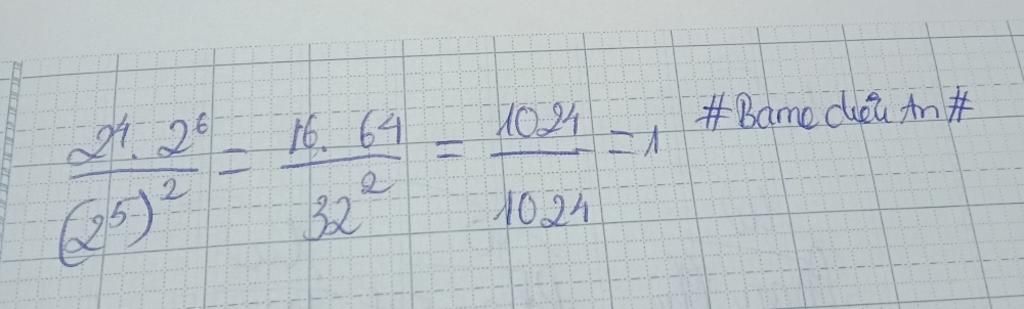 2⁴. 2⁶ / (2⁵)² = 16. 64 / 32² = 1024 / 1024 = 1 #Bame diệu An#